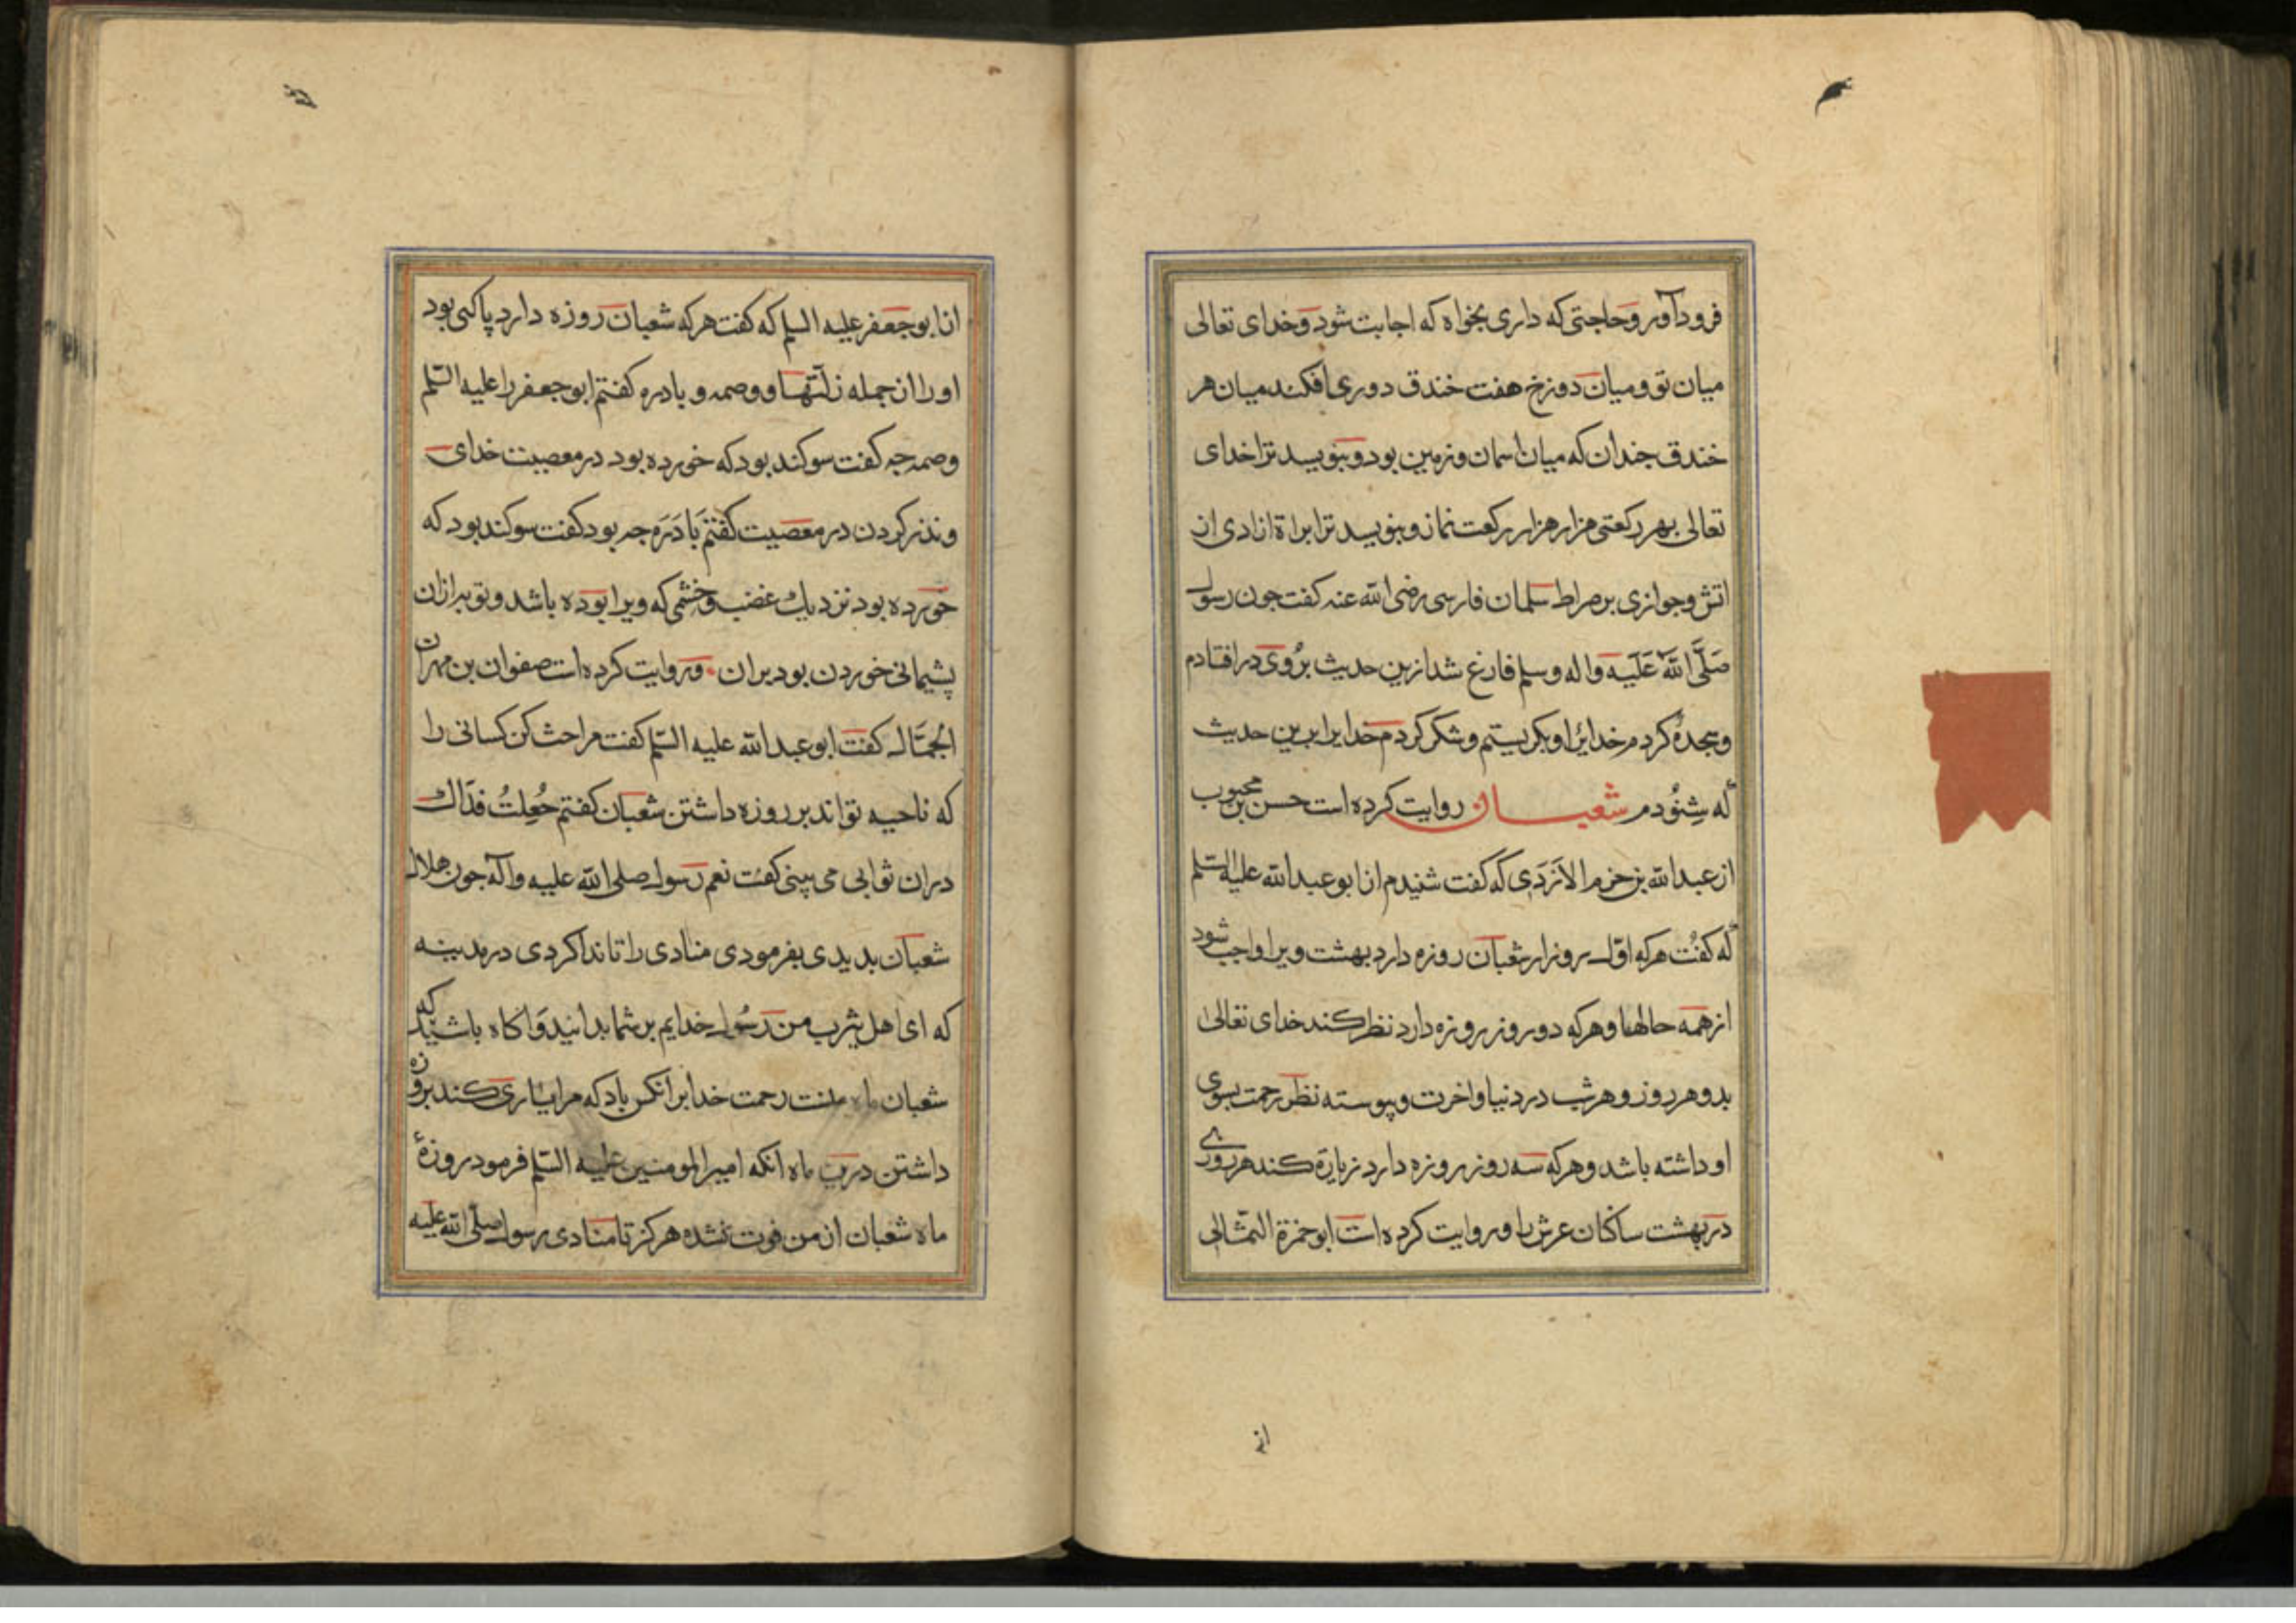 فرود آور و حاجتی که داری بخواه که اجابت شود و خدای تعالی
میان تو و میان دوزخ هفت خندق دوری افکند میان هر
خندق جندان که میان اسمان و زمین بود و بنویسد ترا خدای
تعالی بهر رکعتی هزار هزار رکعت نماز و بنویسد ترا براة ازادی از
اتش و جوازی بر صراط سلمان فارسی رضی الله عنه کفت جون رسول
صَلَّی اللهُ عَلَیه واله وسلم فارغ شد ازین حدیث بروی در افتادم
و سجده کردم خدایرا و بکریستم و شکر کردم خدایرا برین حدیث
که شنودم شعبان روایت کرده است حسن بن محبوب
از عبدالله بن حزم الازدی که کفت شنیدم از ابو عبدالله علیه السلم
که کفت هرکه اوّل روز از شعبان روزه دارد بهشت ویرا واجب شود
از همه حالها و هرکه دو روز روزه دارد نظر کند خدای تعالی
بدو هر روز و هر شب در دنیا و اخرت و پیوسته نظر رحمت بسوی
او داشته باشد و هرکه سه روز روزه دارد زیارة کند هر روزی
در بهشت ساکنان عرش را و روایت کرده است ابو حمزة الثمالی
از
از ابو جعفر علیه السلم که کفت هرکه شعبان روزه دارد پاکی بود
او را از جمله زلّتها و وصمه و بادره کفتم ابو جعفر را علیه السّلم
وصمه جه کفت سوکند بود که خورده بود در معصیت خدای
و نذر کردن در معصیت کفتم بادَرَه جه بود کفت سوکند بود که
خورده بود نزدیک غضب و خشمی که ویرا بوده باشد و توبه ازان
پشیمانی خوردن بود بران و روایت کرده است صفوان بن مهران
الجمّال کفت ابو عبدالله علیه السّلم کفت مرا حث کن کسانی را
که ناحیه تواند بر روزه داشتن شعبان کفتم جُعِلتُ فداک
دران ثوابی می بینی کفت نعم رسول صلی الله علیه وآله جون هلال
شعبان بدیدی بفرمودی منادی را تا ندا کردی در مدینه
که ای اهل یثرب من رسول خدایم بر شما بدانید و اکاه باشید که
شعبان ماه منت رحمت خدا بر انکس باد که مرا یاری کند بروزه
داشتن درین ماه انکه امیر المومنین علیه السّلم فرمود روزهٔ
ماه شعبان از من فوت نشده هرکز تا منادی رسول صلّی الله علیه